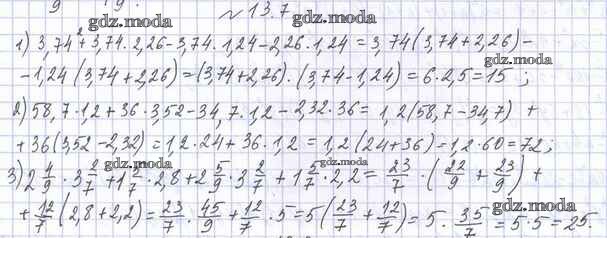 9 19
gdz.moda № 13.7 gdz.moda
1) 3,74² + 3,74 · 2,26 - 3,74 · 1,24 - 2,26 · 1,24 = 3,74(3,74 + 2,26) -
gdz.moda
- 1,24 (3,74 + 2,26) = (3,74 + 2,26) · (3,74 - 1,24) = 6 · 2,5 = 15 ;
2) 58,7 · 1,2 + 36 · 3,52 - 34,7 · 1,2 - 2,32 · 36 = 1,2(58,7 - 34,7) +
+ 36(3,52 - 2,32) = 1,2 · 24 + 36 · 1,2 = 1,2(24 + 36) = 1,2 · 60 = 72 ;
gdz.moda gdz.moda
3) 2 4/9 · 3 2/7 + 1 5/7 · 2,8 + 2 5/9 · 3 2/7 + 1 5/7 · 2,2 = 23/7 · (22/9 + 23/9) +
gdz.moda gdz.moda
+ 12/7 (2,8 + 2,2) = 23/7 · 45/9 + 12/7 · 5 = 5(23/7 + 12/7) = 5 · 35/7 = 5 · 5 = 25.